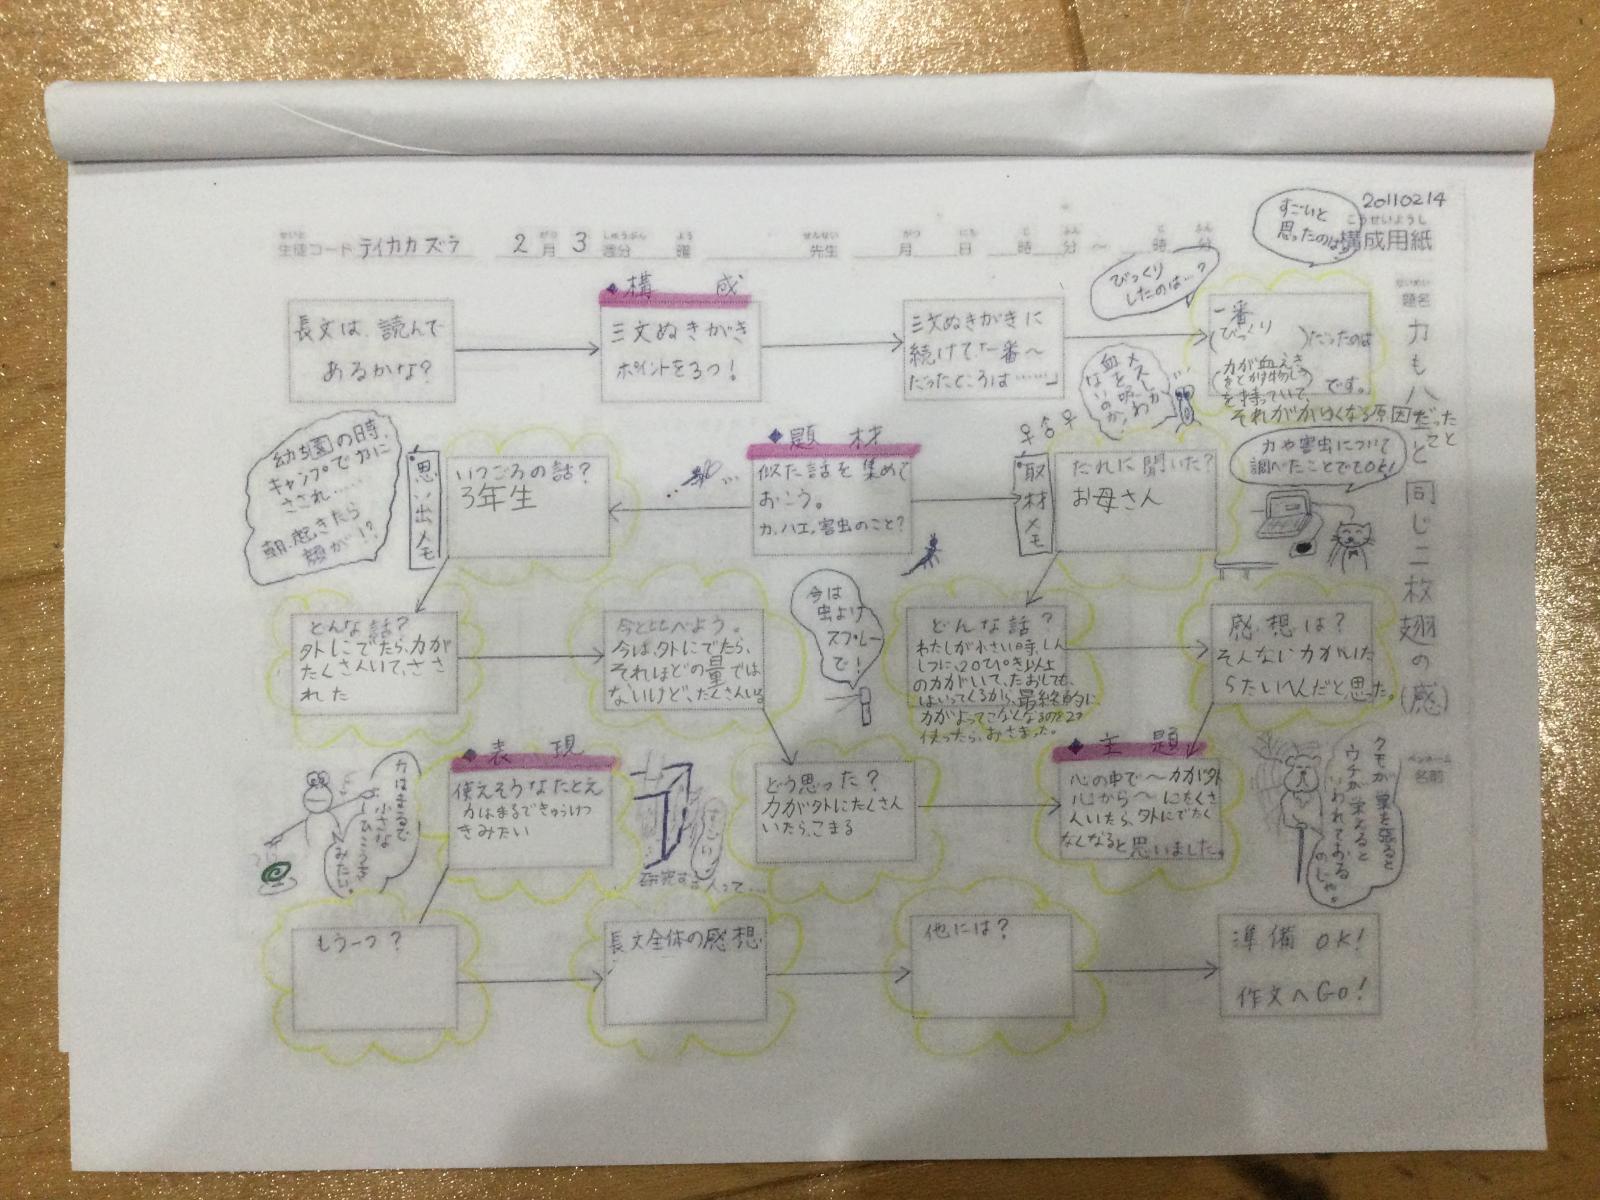 20110214
こうせいようし
構成用紙
生徒コード テイカカズラ 2月 3週分 曜 先生 月 日 時 分 ～ 時 分
だいめい
題名
力もハエと同じ二枚翅の(感)
ペンネーム
名前
すごいと
思ったのは
びっくり
したのは…?
◆構 成
長文は、読んで
あるかな?
三文ぬきがき
ポイントを3つ!
三文ぬきがきに
続けて「一番～
だったところは……」
一番
(びっくり)だったのは
です。
それがかゆくなる原因だった
こと
メスしか
血を吸わ
ないのか!
幼稚園の時、
キャンプでカに
さされ……
朝、起きたら
顔が!?
思い出メモ
いつごろの話?
3年生
◆題 材
似た話を集めて
おこう。
カ、ハエ、害虫のこと?
取材メモ
だれに聞いた?
お母さん
カや害虫について
調べたことでもOK!
どんな話?
外にでたら、カが
たくさんいて、ささ
れた
今と比べよう。
今は、外にでたら、
それほどの量では
ないけど、たくさんいる。
今は
虫よけ
スプレー
で!
どんな話?
わたしが小さい時、しん
しつに、20ぴき以上
のカがいて、たおしても、
はいってくるから、最終的に
カがよってこなくなるのを2つ
使ったら、おさまった。
感想は?
そんなにカがいた
らたいへんだと思った。
カはまるで
小さな
ひこうき
みたい。
◆表 現
使えそうなたとえ
カはまるできゅうけつ
きみたい
研究する人って…
どう思った?
カが外にたくさん
いたら、こまる
◆主 題
心の中で～カが外
心から～にたくさ
んいたら、外にでたく
なくなると思いました。
クモが巣を張ると
ウチが栄えると
いわれておる
のじゃ。
もう一つ?
長文全体の感想
他には?
準備 OK!
作文へGO!